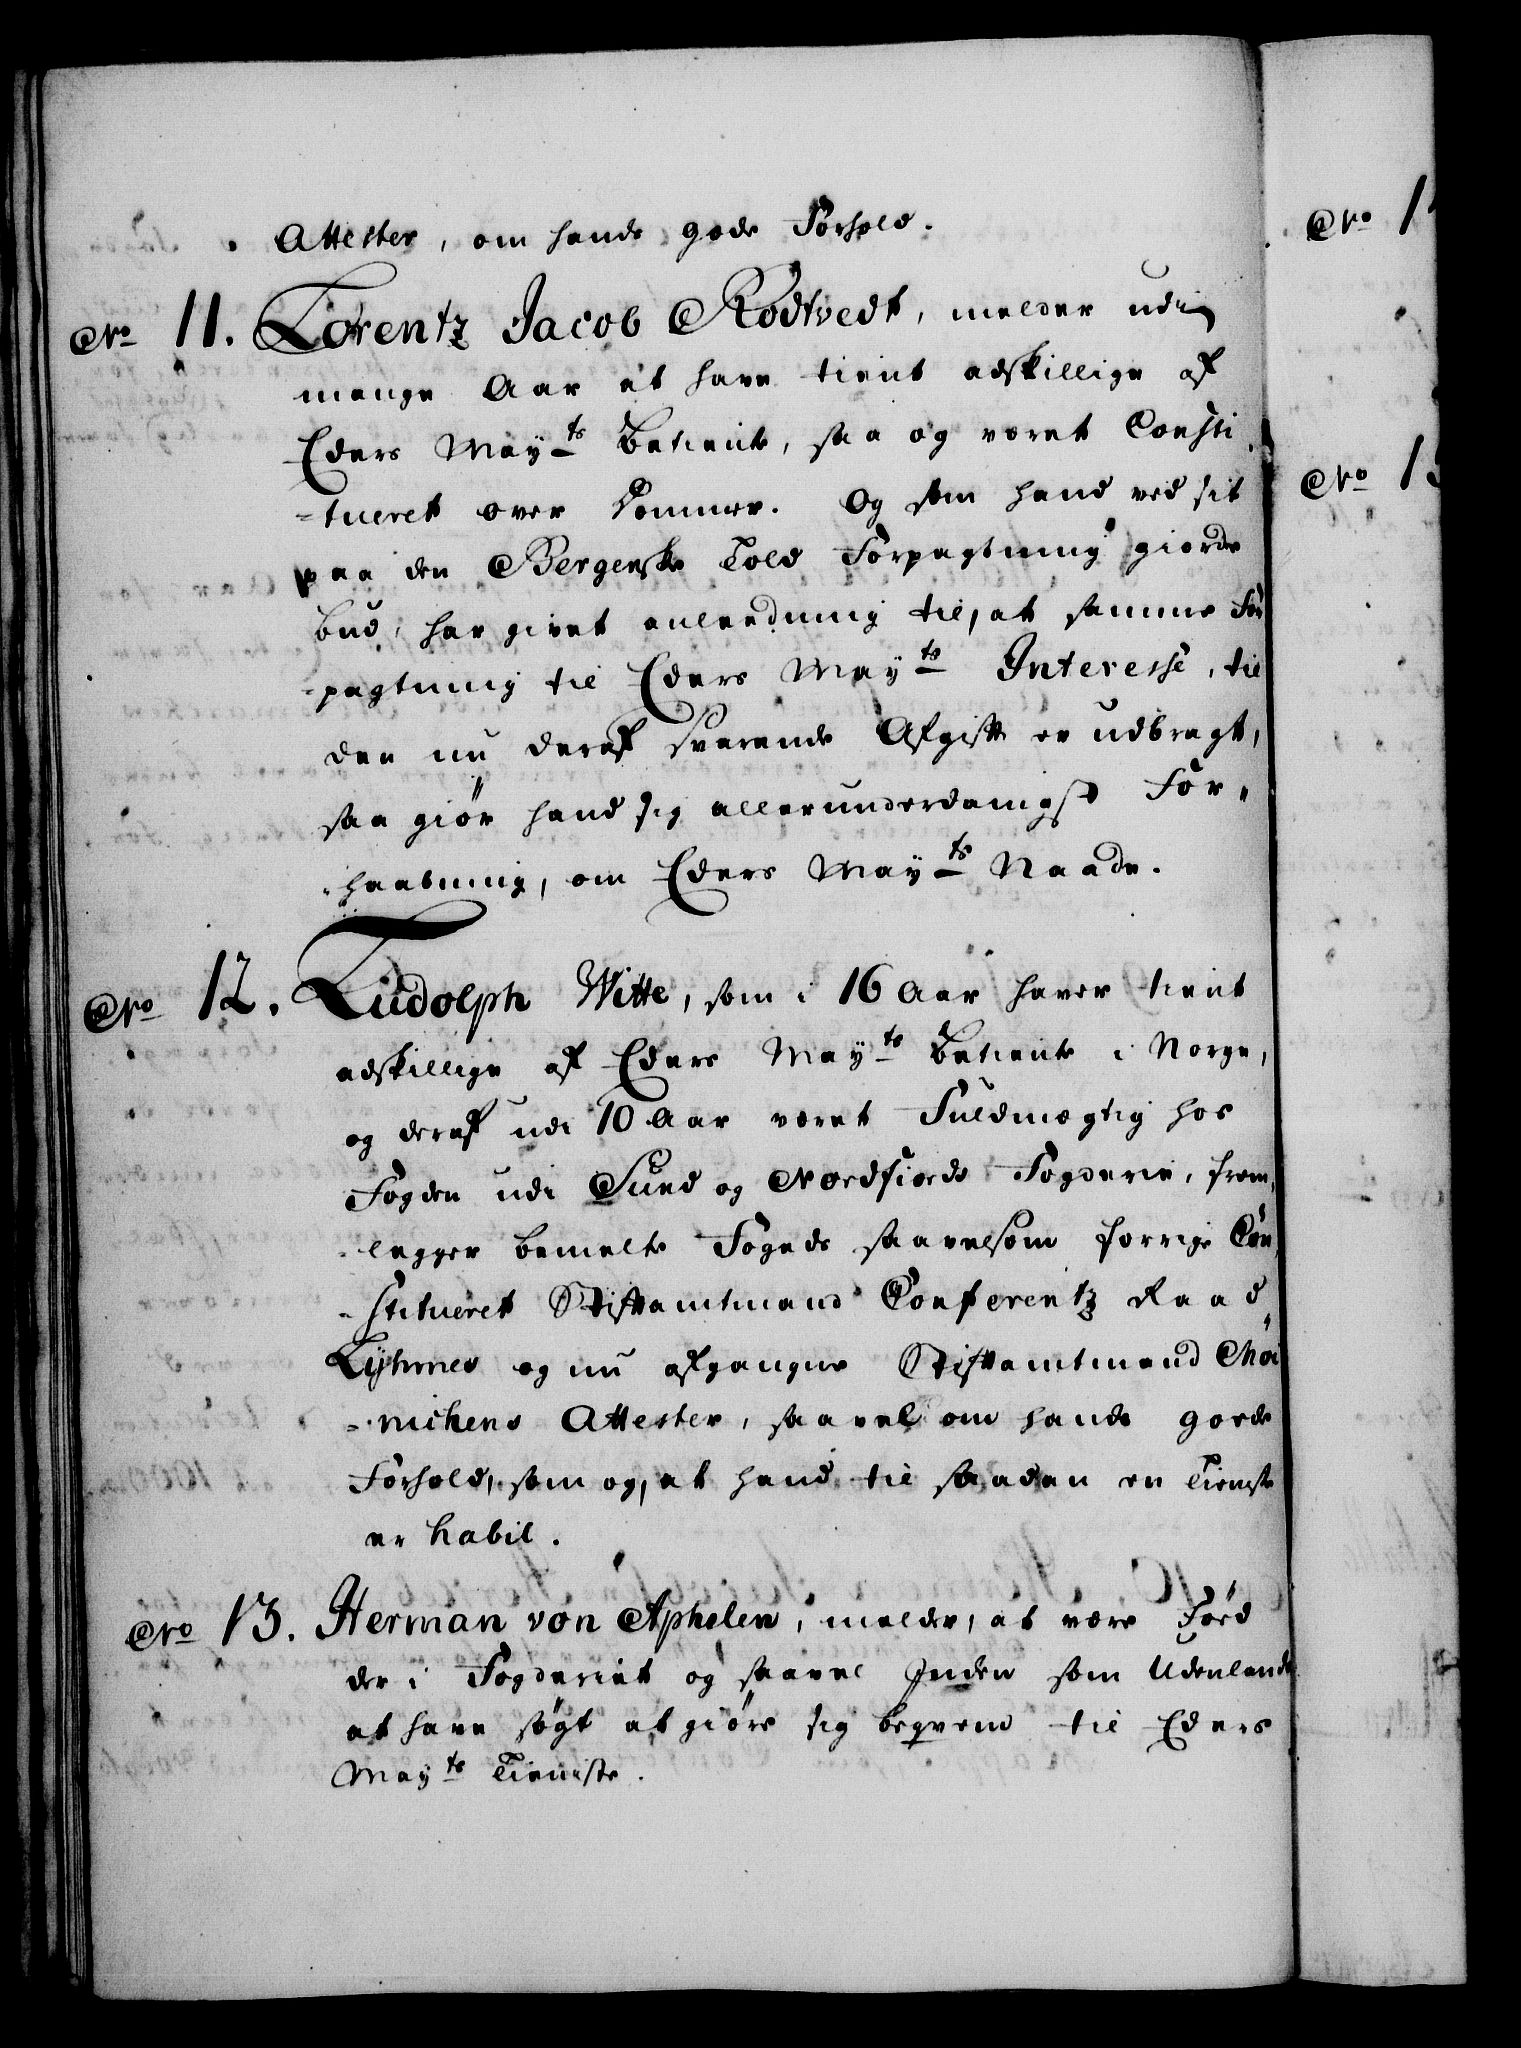 Attester, om hands gode Forhold.
No 11. Lorentz Jacob Rodtvedt, melder udi
mange Aar at have tient adskillige af
Eders Mayts Betiente, saa og været Consti
-tueret over Dommer. Og som hand ved sit
paa den Bergenske Told Forpagtning giorde
bud, har givet anleedning til, at samme For
-pagtning til Eders Mayts Interesse, til
den nu deraf svarende Afgift er udbragt,
saa giør hand sig allerunderdanigst For-
-haabning, om Eders Mayts Naade.
No 12. Ludolph Witte, som i 16 Aar haver tient
adskillige af Eders Mayts Betiente i Norge,
og deraf udi 10 Aar været Fuldmægtig hos
Fogden udi Sund og Nordfiords Fogderie, frem,
-legger bemelte Fogeds saavelsom forrige Con,
-stitueret Stiftamtmand Conferentz Raad
Lyhmes og nu afgangne Stiftamtmand Möi
-nichens Attester, saavel om hands goede
Forhold, som og, at hand til saadan en Tieneste
er habil.
No 13. Herman von Aphelen, melder, at være Föed
der i Fogderiet og saavel Inden som Udenlands
at have søgt at giöre sig beqvem til Eders
Mayts Tieniste.
No 1
No 15